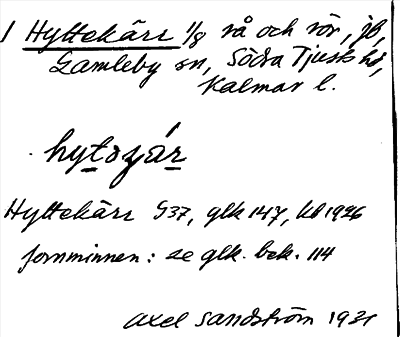 1 Hyttekärr 1/8 rå och rör, jb,
Gamleby sn, Södra Tjust hd,
Kalmar l.
hytəzár
Hyttekärr G37, glk 147, kb 1926
fornminnen: se glk. bek. 114
Axel Sandström 1931